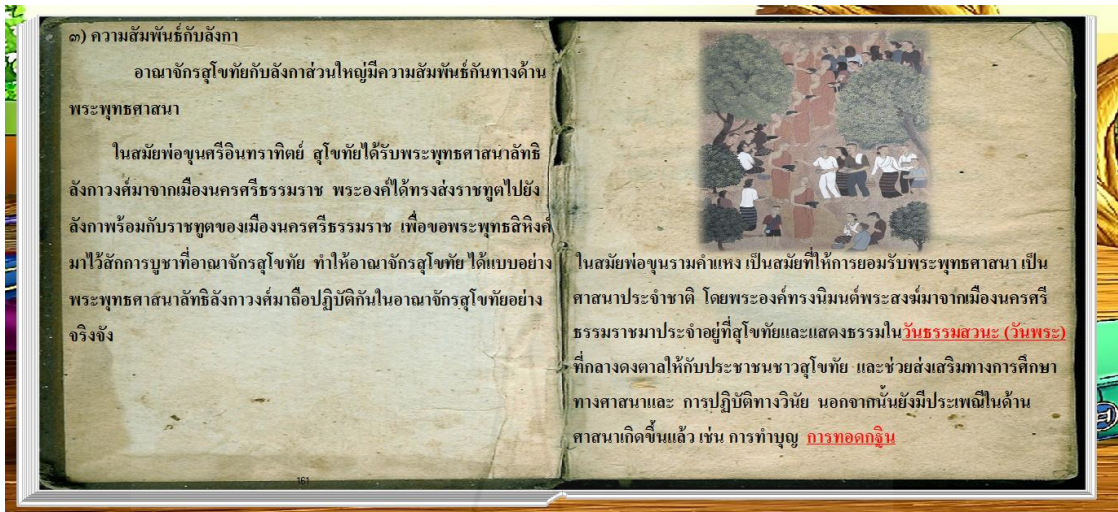 ๓) ความสัมพันธ์กับลังกา
อาณาจักรสุโขทัยกับลังกาส่วนใหญ่มีความสัมพันธ์กันทางด้าน
พระพุทธศาสนา
ในสมัยพ่อขุนศรีอินทราทิตย์ สุโขทัยได้รับพระพุทธศาสนาลัทธิ
ลังกาวงศ์มาจากเมืองนครศรีธรรมราช พระองค์ได้ทรงส่งราชทูตไปยัง
ลังกาพร้อมกับราชทูตของเมืองนครศรีธรรมราช เพื่อขอพระพุทธสิหิงค์
มาไว้สักการบูชาที่อาณาจักรสุโขทัย ทำให้อาณาจักรสุโขทัย ได้แบบอย่าง
พระพุทธศาสนาลัทธิลังกาวงศ์มาถือปฏิบัติกันในอาณาจักรสุโขทัยอย่าง
จริงจัง
161
ในสมัยพ่อขุนรามคำแหง เป็นสมัยที่ให้การยอมรับพระพุทธศาสนา เป็น
ศาสนาประจำชาติ โดยพระองค์ทรงนิมนต์พระสงฆ์มาจากเมืองนครศรี
ธรรมราชมาประจำอยู่ที่สุโขทัยและแสดงธรรมในวันธรรมสวนะ (วันพระ)
ที่กลางดงตาลให้กับประชาชนชาวสุโขทัย และช่วยส่งเสริมทางการศึกษา
ทางศาสนาและ การปฏิบัติทางวินัย นอกจากนั้นยังมีประเพณีในด้าน
ศาสนาเกิดขึ้นแล้ว เช่น การทำบุญ การทอดกฐิน